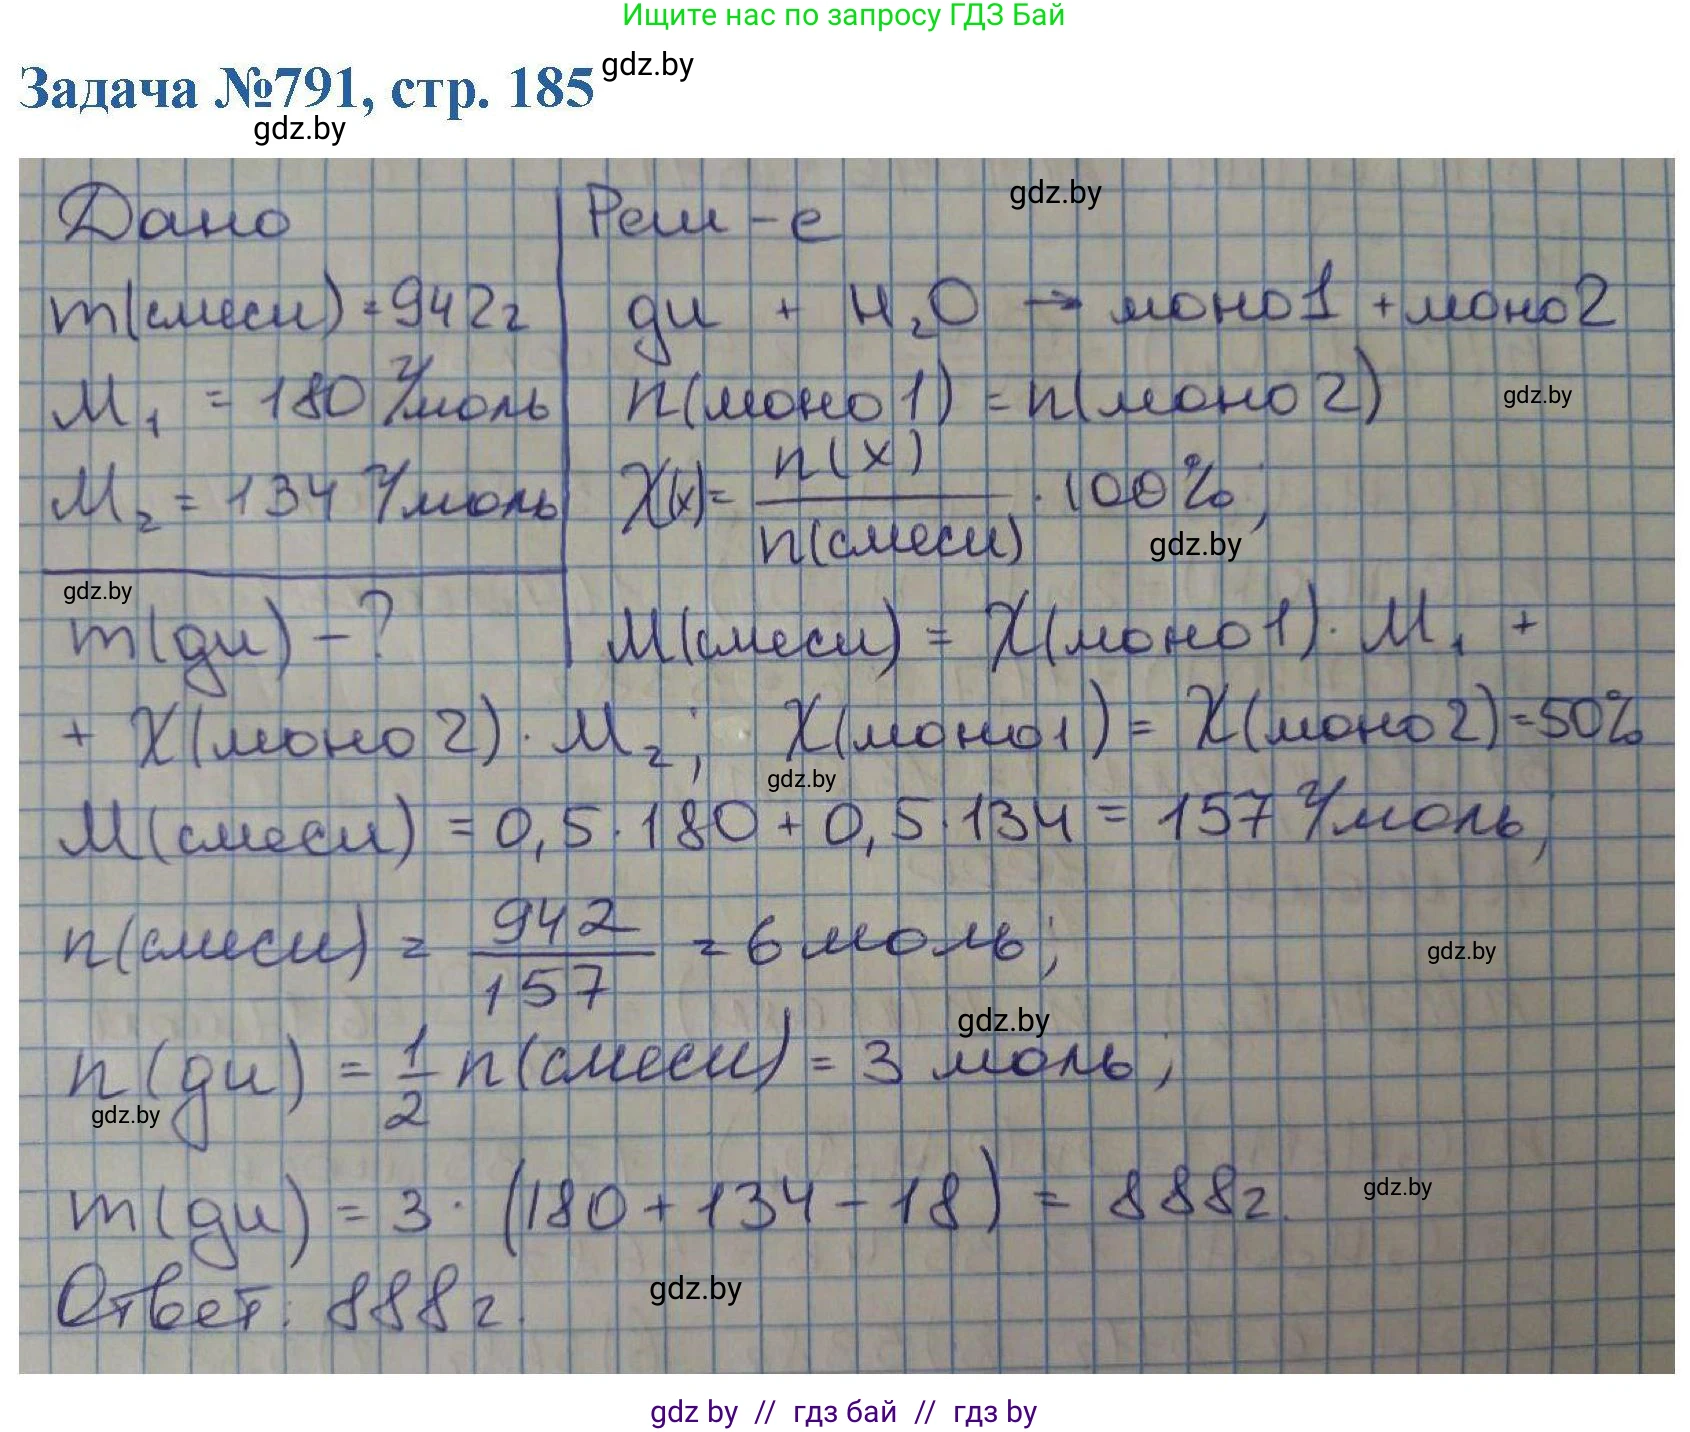 Ищите нас по запросу ГДЗ Бай
Задача №791, стр. 185 gdz.by
gdz.by
Дано
m(смеси) = 942г
M₁ = 180 г/моль
M₂ = 134 г/моль
gdz.by
m(ди) - ?
Реш-е gdz.by
ди + H₂O → моно1 + моно2
n(моно1) = n(моно2) gdz.by
X(x) = n(x) / n(смеси) · 100%;
gdz.by
M(смеси) = X(моно1) · M₁ +
+ X(моно2) · M₂; X(моно1) = X(моно2) = 50%
gdz.by
M(смеси) = 0,5 · 180 + 0,5 · 134 = 157 г/моль;
n(смеси) = 942 / 157 = 6 моль; gdz.by
gdz.by
n(ди) = 1/2 n(смеси) = 3 моль;
gdz.by
m(ди) = 3 · (180 + 134 - 18) = 888г. gdz.by
Ответ: 888г. gdz.by
gdz by // гдз бай // гдз by